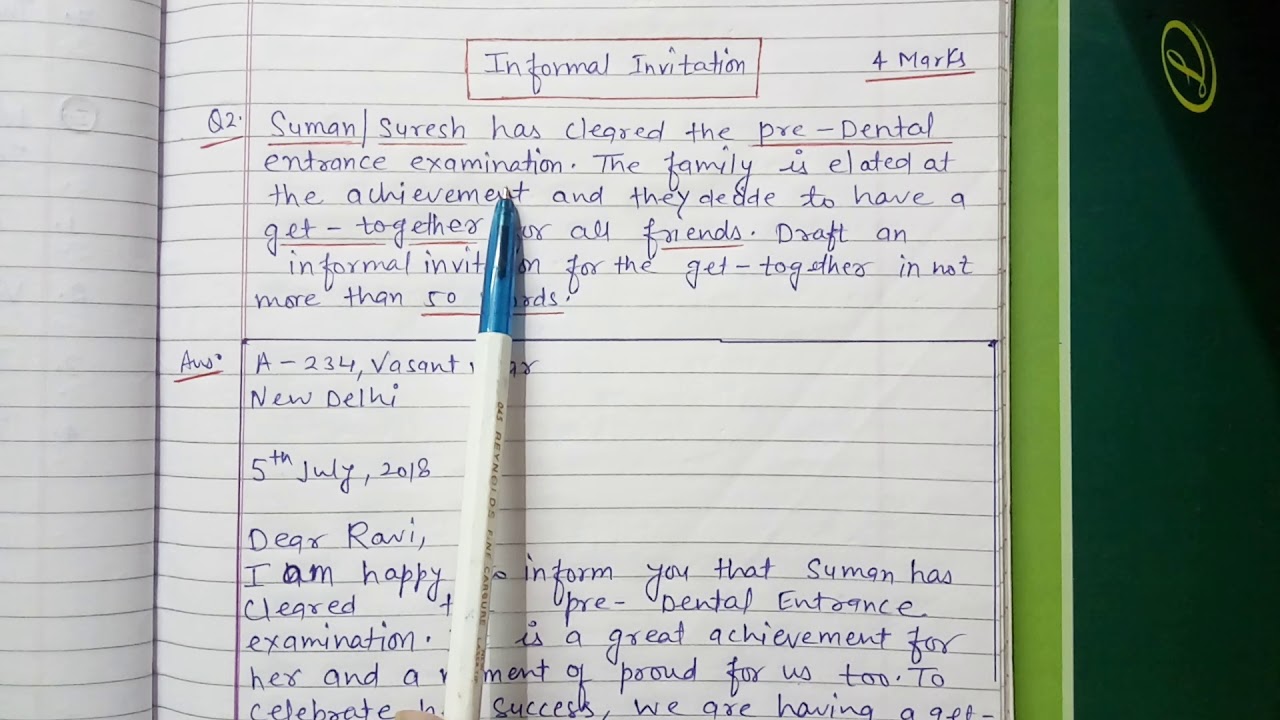 Informal Invitation
4 Marks
Q2. Suman/Suresh has cleared the pre-Dental
entrance examination. The family is elated at
the achievement and they decide to have a
get-together for all friends. Draft an
informal invitation for the get-together in not
more than 50 words.
Ans. A-234, Vasant
New Delhi
5th July, 2018
Dear Ravi,
I am happy to inform you that Suman has
cleared pre-Dental Entrance
examination. is a great achievement for
her and a moment of proud for us too. To
celebrate success, we are having a get-
045 REYNOLDS FINE CARBURE